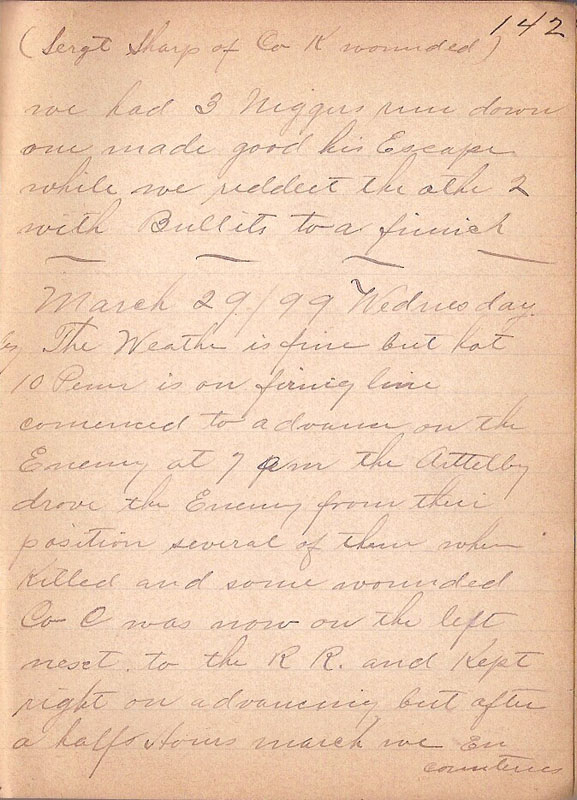 142
(Sergt Sharp of Co K wounded)
we had 3 Niggers run down
one made good his Escape
while we reddeet the othe 2
with Bullits to a finich
March 29/99 Wednesday
The Weathe is fine but hot
10 Penn is on firnig line
comenced to advance on the
Enemy at 7 am the Arttelby
drove the Enemy from their
position several of them when
Killed and some wounded
Co C was now on the left
nesct. to the R R. and Kept
right on advancing but after
a halfs Hours march we En
counteres